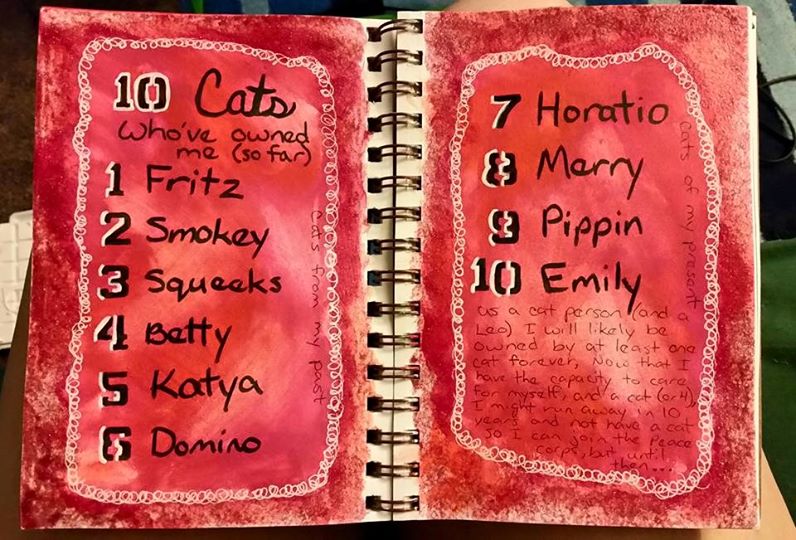 10 Cats
who've owned
me (so far)
1 Fritz
2 Smokey
3 Squeeks
4 Betty
5 Katya
6 Domino
cats from my past
7 Horatio
8 Merry
9 Pippin
10 Emily
cats of my present
as a cat person (and a
Leo) I will likely be
owned by at least one
cat forever, Now that I
have the capacity to care
for myself, and a cat (or 4),
I might run away in 10
years and not have a cat
so I can join the Peace
corps, but until
then...